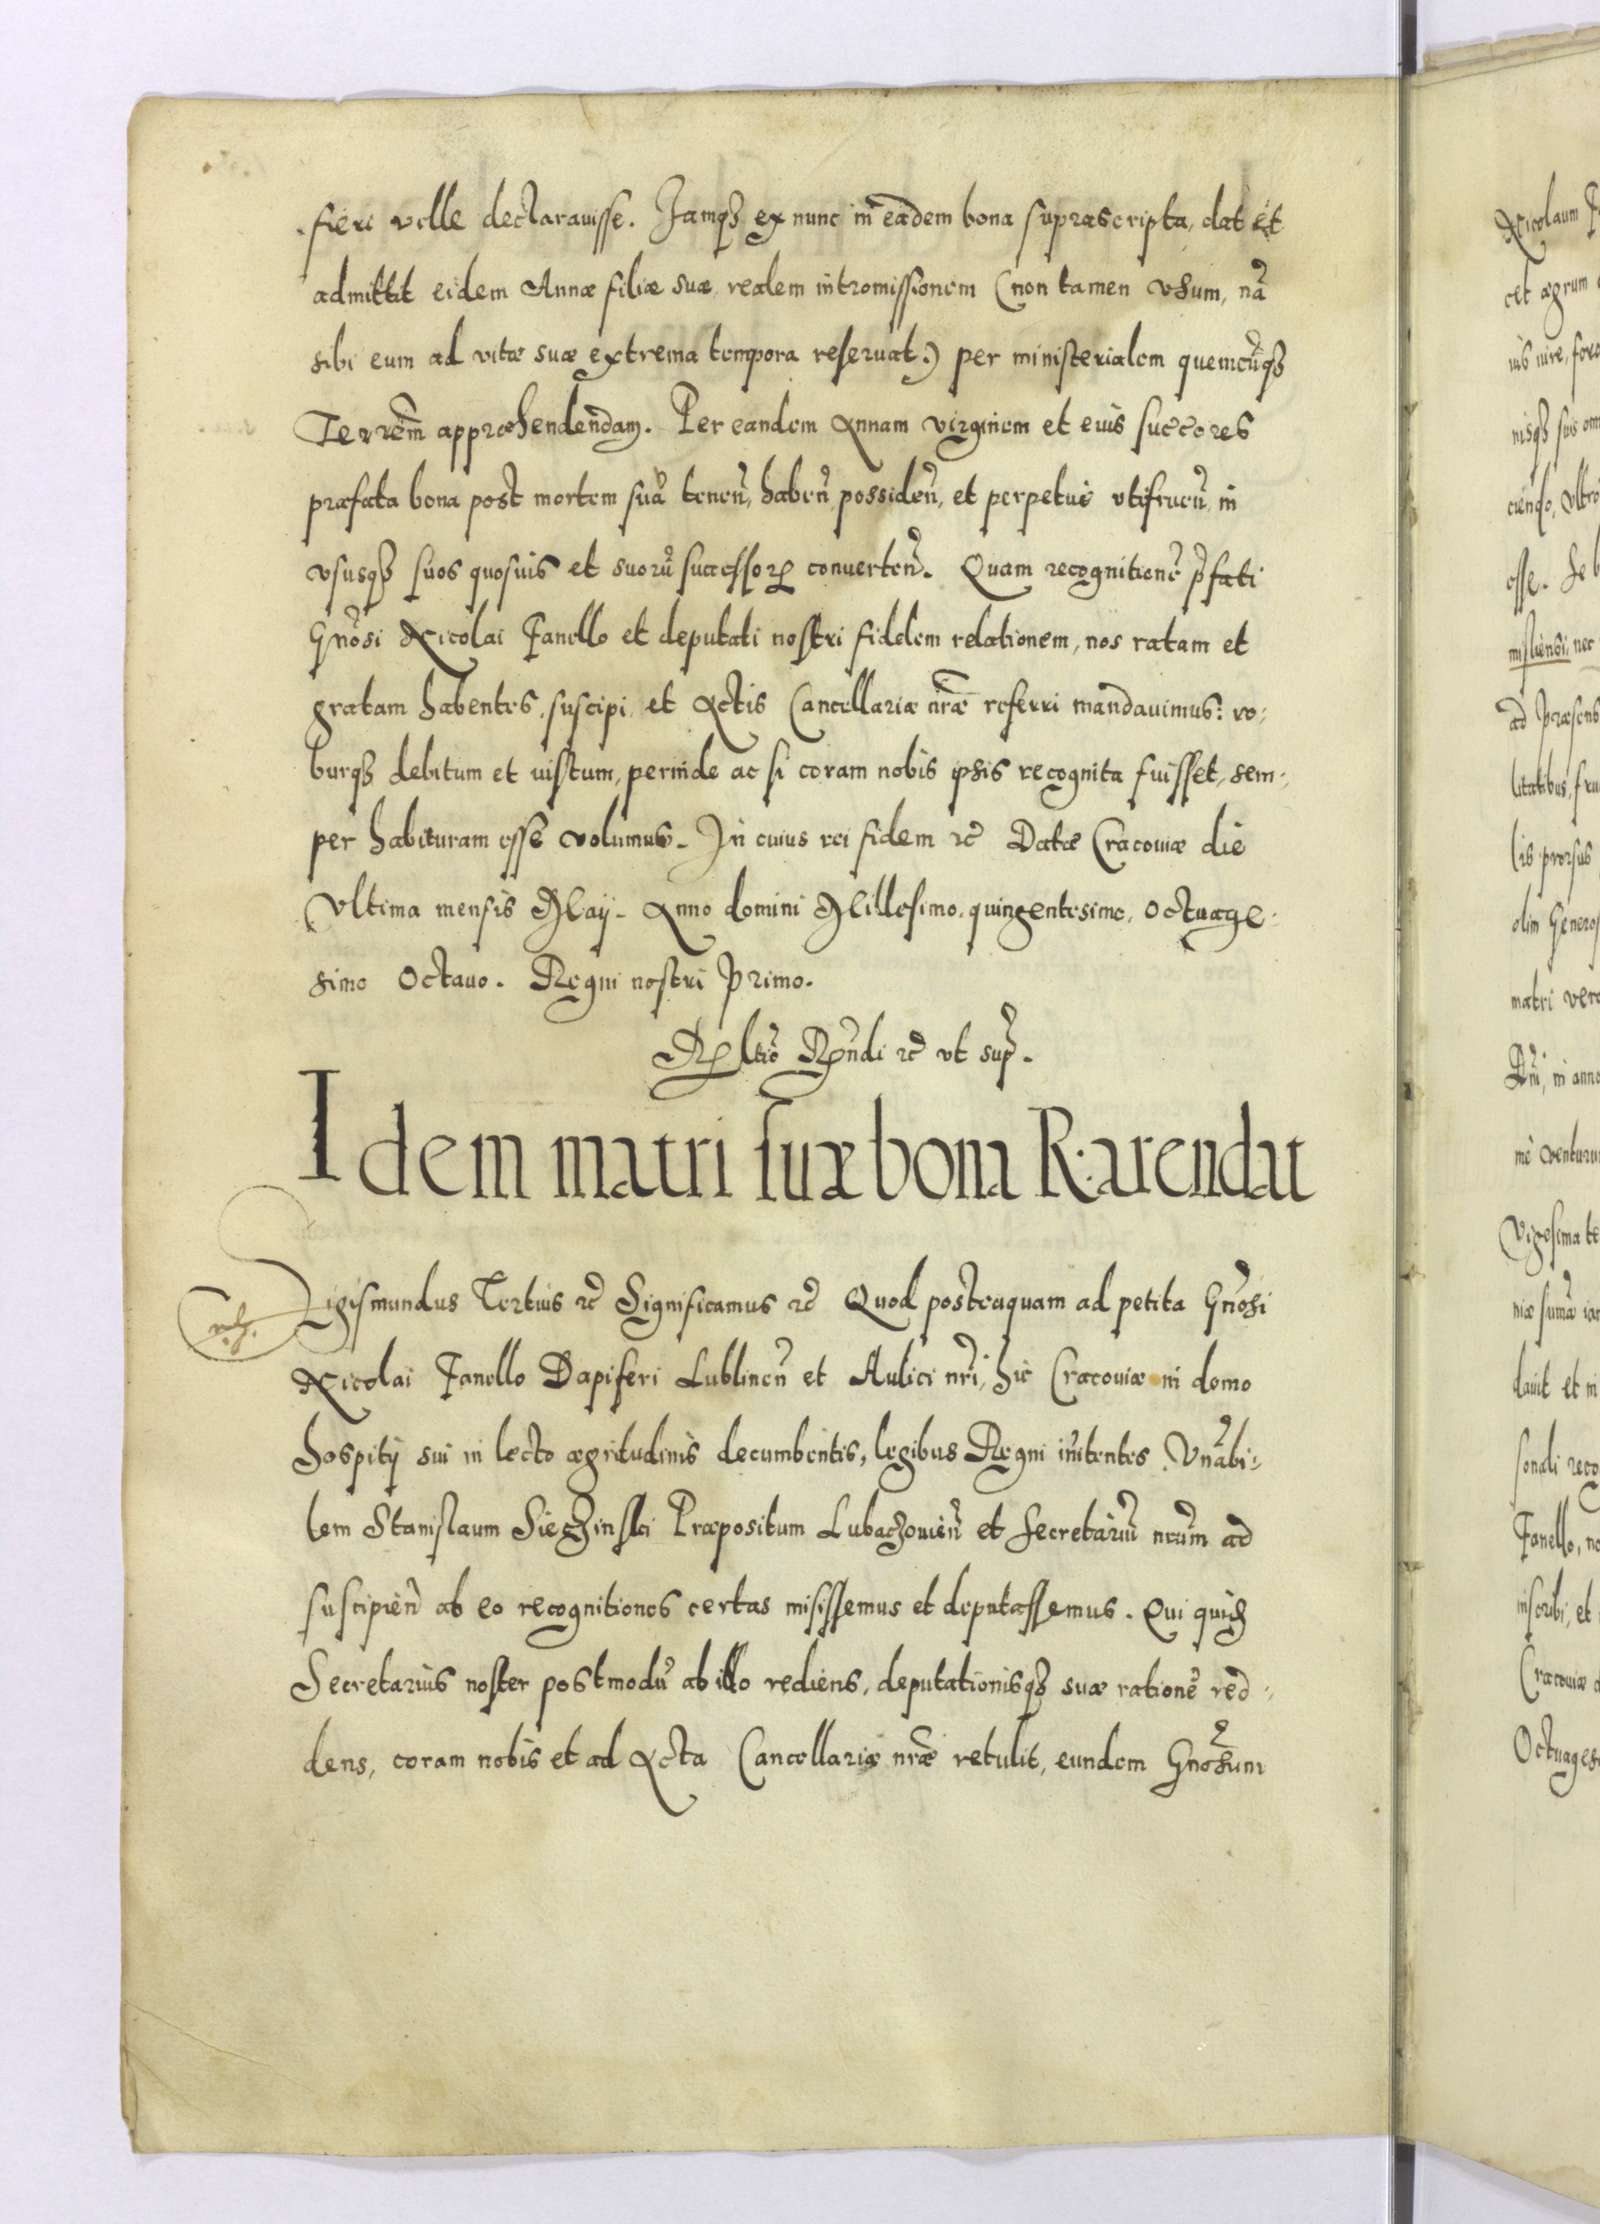 fieri velle declarauisse. Jamqȝ ex nunc in eadem bona suprascripta, dat et
admittit eidem Annæ filiæ suæ realem intromissionem (non tamen vsum, nã
sibi eum ad vitæ suæ extrema tempora reseruat) per ministerialem quemcũqȝ
Terrem̃ appræhendendam. Per eandem Annam virginem et eius succores
præfata bona post mortem suã tenen̄, haben̄, possiden̄, et perpetuis vtifruen̄, in
vsusqȝ suos quosuis et suorũ successorꝝ conuerten̄. Quam recognitionẽ p̃fati
Gñosi Nicolai Fanello et deputati nostri fidelem relationem, nos ratam et
gratam habentes, suscipi et Actis Cancellariæ nr̃æ referri mandauimus: ro-
burqȝ debitum et iustum, perinde ac si coram nobis ipsis recognita fuisset, sem-
per habituram esse volumus. In cuius rei fidem ꝛc̃ Datæ Cracouiæ die
Vltima mensis Maij. Anno domini Millesimo, quingentesimo, Octuage-
simo Octauo. Regni nostri Primo.
Rl̃tio Rñdi ꝛc̃ vt sup̃.
Idem matri suæ bona R. arendat
Sigismundus Tertius ꝛc̃ Significamus ꝛc̃ Quod posteaquam ad petita Gñosi
Nicolai Fanello Dapiferi Lublinen̄ et Aulici nr̃i, hic Cracouiæ in domo
hospitij sui in lecto ægritudinis decumbentis, legibus Regni innitentes Vñabi-
lem Stanislaum Siechinski Præpositum Lubachouien̄ et Secretariũ nr̃um ad
suscipien̄ ab eo recognitiones certas misissemus et deputassemus. Qui quidẽ
Secretarius noster postmodũ ab illo rediens, deputationisqȝ suæ rationẽ red-
dens, coram nobis et ad Acta Cancellariæ nr̃æ retulit, eundem Gñosum
Nicolaum
et ægrum
uis iure, foro
nisqȝ suis om
ciendo, Vltro
esse. Se
misliensi, nec
ad Præsens
litatibus, fru
lis prorsus
olim Generos
matri vere
Dñi, in anno
mẽ venturum
Vigesima te
niæ sum̃a
dauit et in
sonali reco
Fanello, no
inscribi, et
Cracouiæ d
Octuagesi